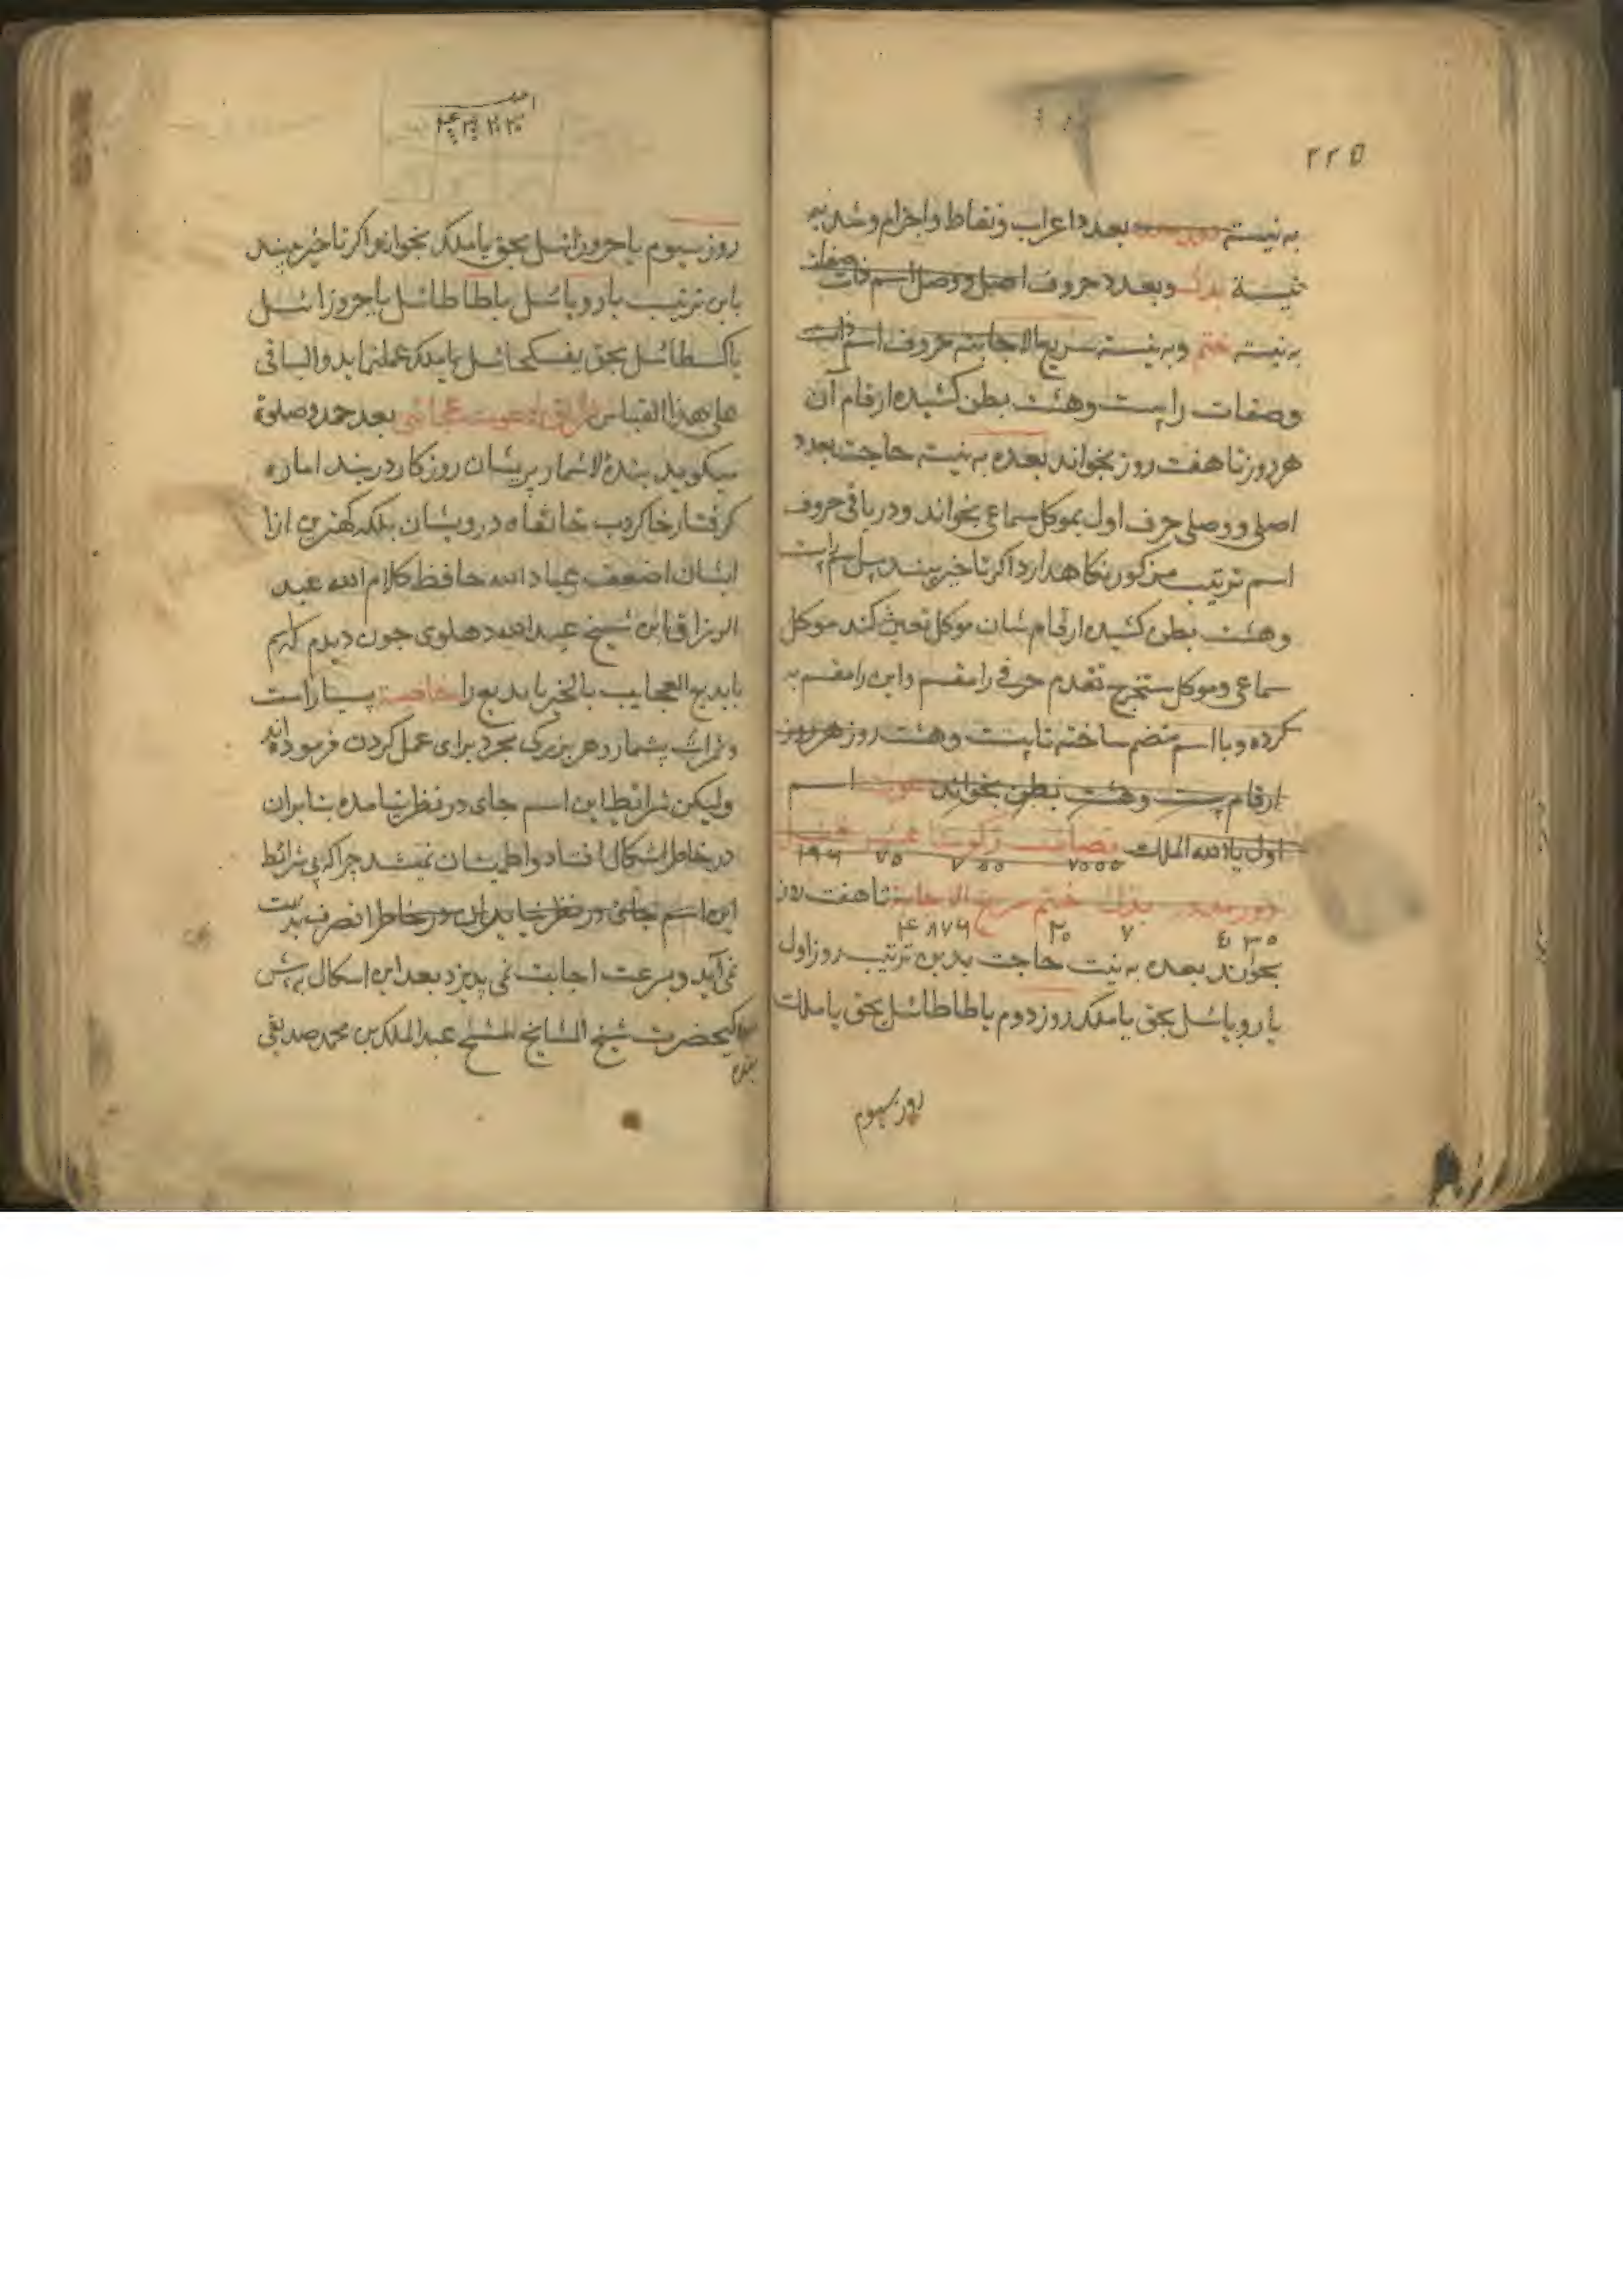 ٢٢٥
به نیسته دور مدور بعدد اعراب ونقاط واجزام وشد به
نیسة بذل وبعدد حروف اصلی ووصل اسم ذات صفات
به نیسته ختم وبه نیسته سریع الاجابته حروف اسم ذات
وصفات را بیست وهشت بطن کشیده ارقام آن
هر روز تا هفت روز بخواند بعده به نیسته حاجت بعدد
اصلی ووصلی حرف اول بموکل سماعی بخواند ودر باقی حروف
اسم ترتیب مزکور نکاهدارد اکر تاخیر بیند پس
وهشت بطن کشیده ارقام شان موکل تعین کند موکل
سماعی وموکل ستخرج تقدم حرفی را مقسم واین را مقسم به
کرده وبا اسم منضم ساخته تا بیست وهشت روز هر روز
ارقام بیست وهشت بطن بخواند دعوت اسم
اول یا الله الملک نصاب زکوة عشر قفل
١٩٦ ٧٥ ٧٥٥ ٧٥٥٥
دور مدور بذل ختم سریع الاجابة تا هفت روز
٧ ٢٥ ٤٨٧٩
بخواند بعده به نیت حاجت بدین ترتیب روز اول
یا رویائیل بحق یا ملک روز دوم یا طاطائیل بحق یا ملک
روز سیوم
روز سیوم یا جروزائیل بحق یا ملک بخواند واکر تاخیر بیند
باین ترتیب یا رویائیل یا طاطائیل یا جروزائیل
یا کسطائیل بحق یا ملک عمل نماید والباقی
علی هذا القیاس دعوت بعد حمد وصلوة
میکوید بندهٔ لاشمار پریشان روزکار در بند اماره
کرفتار خاکروب خانقاه درویشان بلکه کمترین ازا
ایشان اضعف عباد الله حافظ کلام الله عبد
الرزاق ابن شیخ عبد احمد دهلوی چون دیدم که اسم
یا بدیع العجایب بالخیر یا بدیع را خاصیة بسیار است
وثرات بیشمار وهر بزرکی مجرد برای عمل کردن فرموده اند
ولیکن شرائط این اسم جای در نظر نیامده بنابران
در خاطر اشکال افتاد واطمینان نمیشد چراکه بی شرائط
این اسم جائی در نظر نیامد دور خاطر تصرف بدست
نمی آید وبسرعت اجابت نمی پذیرد بعد این اشکال به پیش
کیحضرت شیخ المشایخ المشیخ عبد الملک بن محمد صدیقی